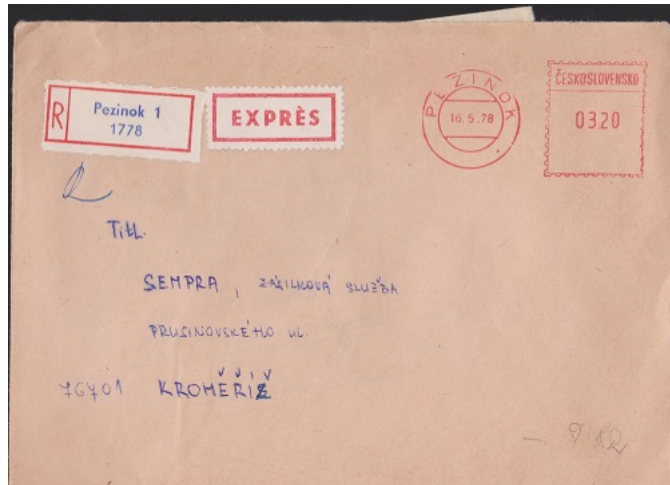 R Pezinok 1
1778
EXPRÈS
PEZINOK
16.5.78
ČESKOSLOVENSKO
0320
Titl.
SEMPRA, ZÁSILKOVÁ SLUŽBA
PRUSINOVSKÉHO ul.
76701 KROMĚŘÍŽ